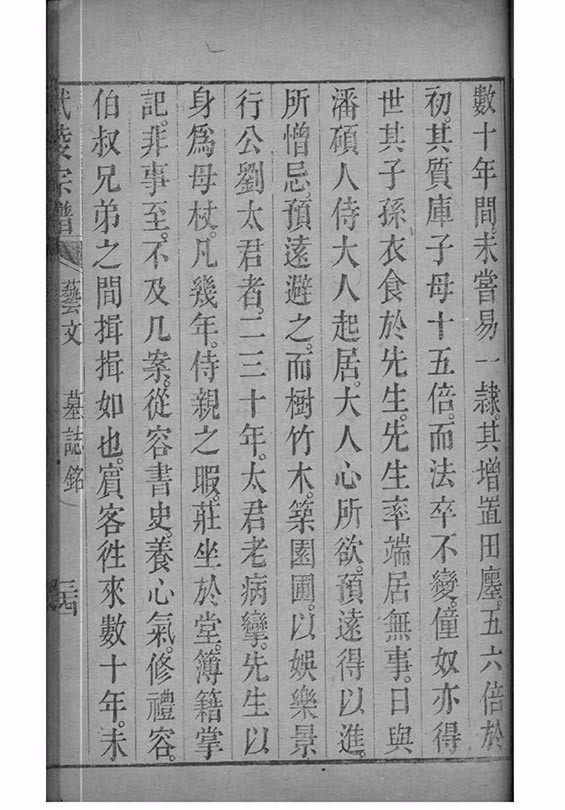 數十年間。未嘗易一隷。其增置田廛。五六倍於
初。其質庫子母十五倍。而法卒不變。僮奴亦得
世其子孫衣食於先生。先生率端居無事。日與
潘碩人侍大人起居。大人心所欲。預遠得以進。
所憎忌。預遠避之。而樹竹木。築園圃。以娛樂景
行公劉太君者。二三十年。太君老病攣。先生以
身爲母杖。凡幾年。侍親之暇。莊坐於堂。簿籍掌
記。非事至。不及几案。從容書史。養心氣。修禮容。
伯叔兄弟之間揖揖如也。賓客徃來數十年。未
宗譜 藝文 墓誌銘